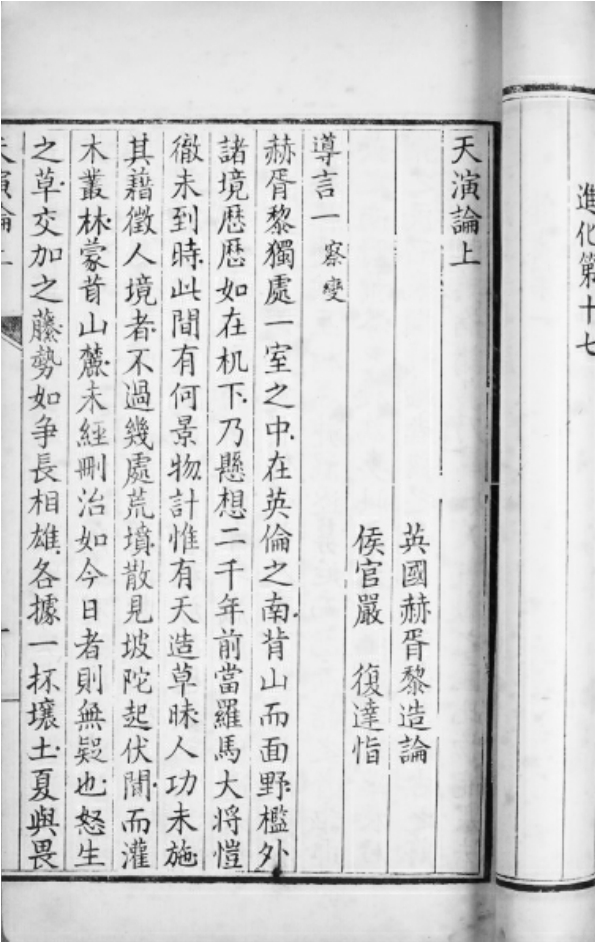 進化第十七
天演論上
英國赫胥黎造論
侯官嚴 復達恉
導言一 察變
赫胥黎獨處一室之中在英倫之南背山而面野檻外
諸境歷歷如在机下乃懸想二千年前當羅馬大將愷
徹未到時此間有何景物計惟有天造草昧人功未施
其藉徵人境者不過幾處荒墳散見坡陀起伏間而灌
木叢林蒙茸山麓未經刪治如今日者則無疑也怒生
之草交加之藤勢如爭長相雄各據一抔壤土夏與畏
天演論上
一